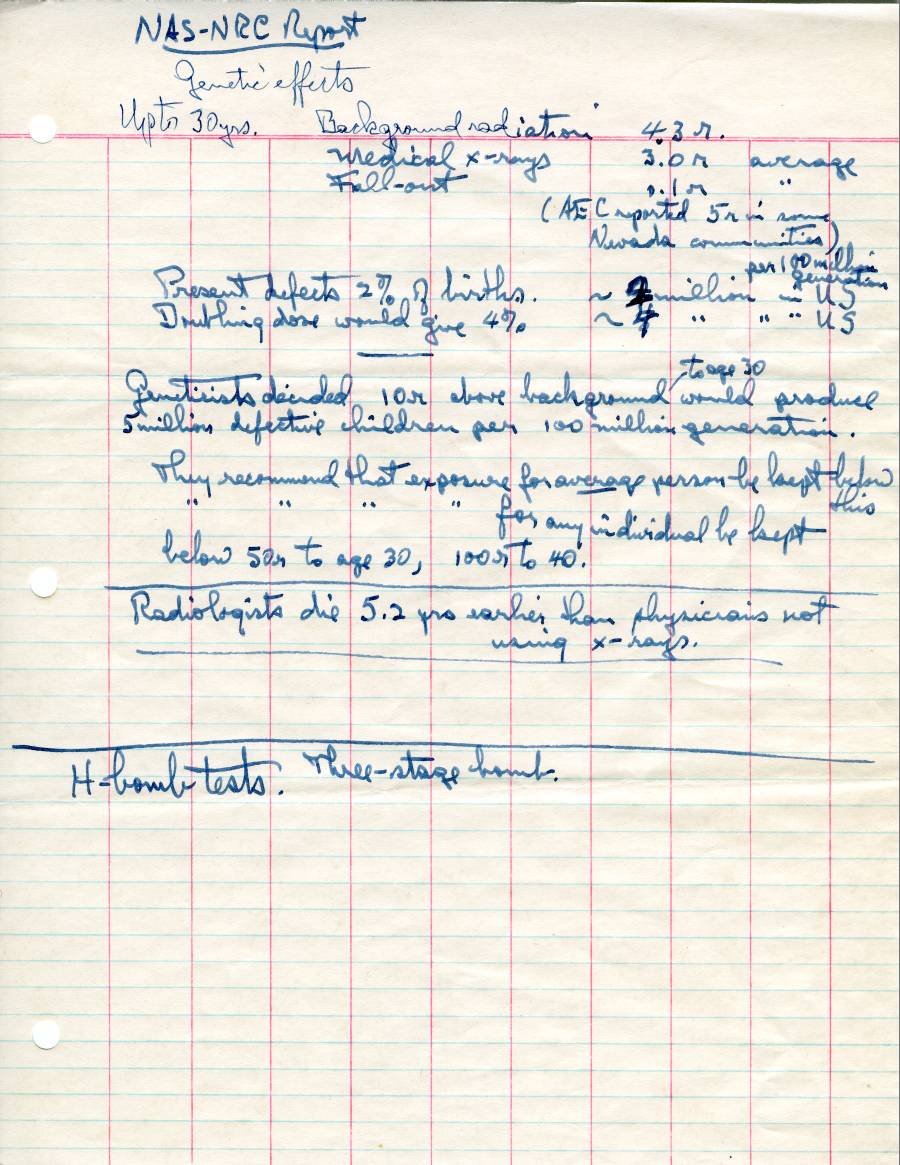 NAS-NRC Report
Genetic effects
Up to 30 yrs. Background radiation 4.3 r.
Medical x-rays 3.0 r average
Fall-out 0.1 r "
(AEC reported 5r in some
Nevada communities)
per 100 million
generation
Present defects 2% of births. ~ 2 million in US
Doubling dose would give 4% ~ 4 " " " US
to age 30
Geneticists decided 10r above background would produce
5 million defective children per 100 million generation.
They recommend that exposure for average person be kept below
this
" " " " for any individual be kept
below 50r to age 30, 100r to 40.
Radiologists die 5.2 yrs earlier than physicians not
using x-rays.
H-bomb tests. Three-stage bomb.